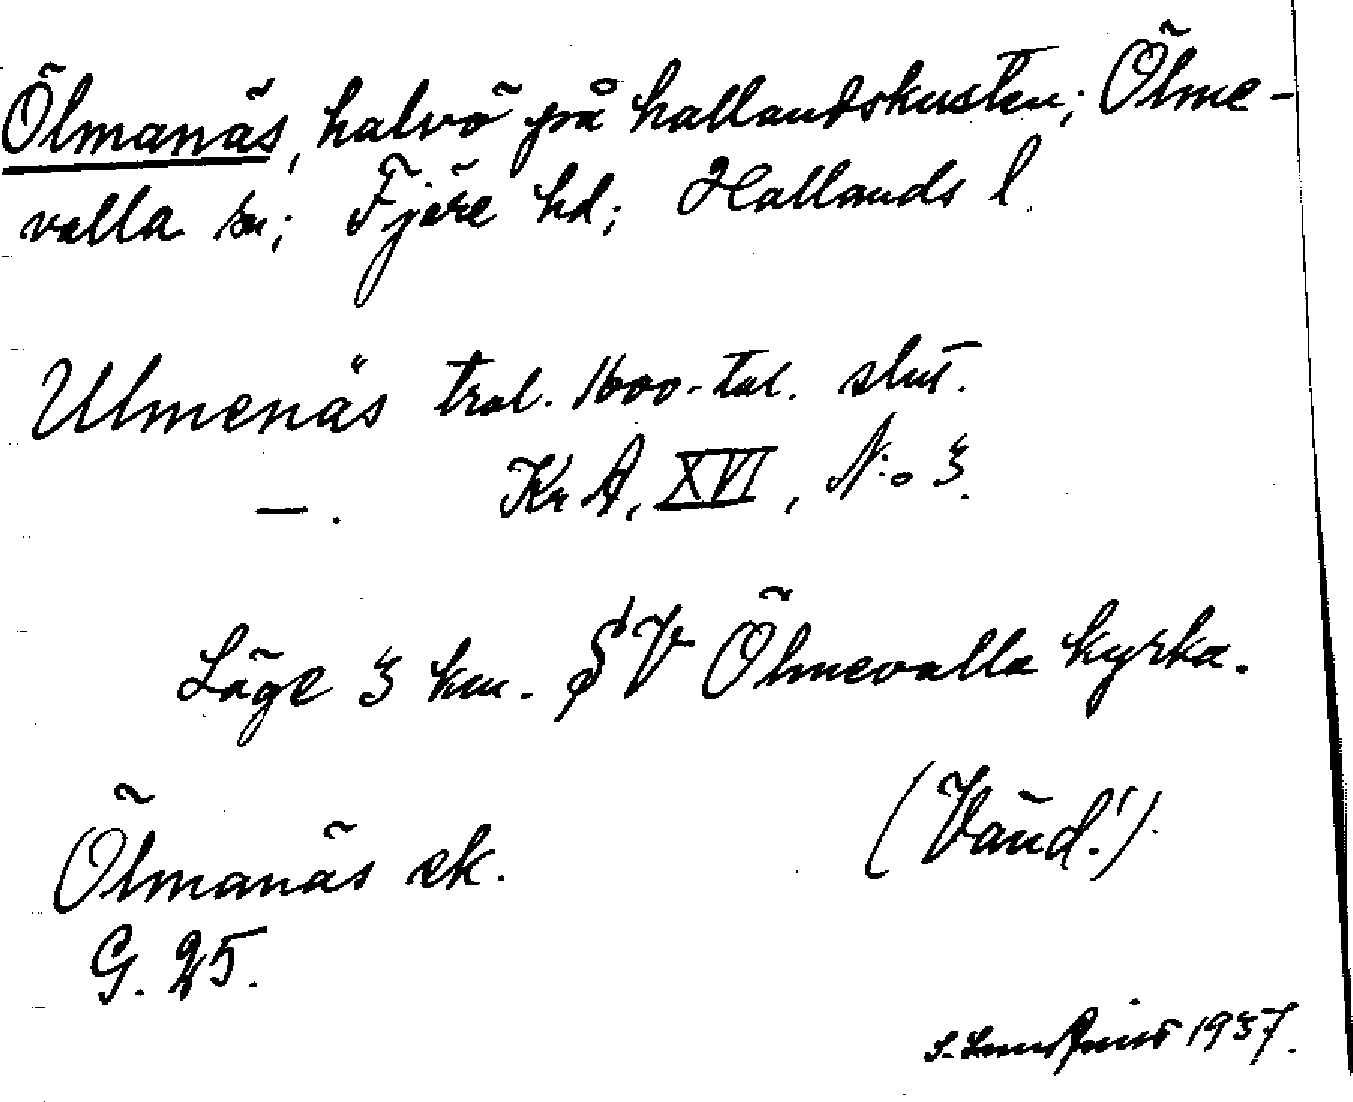 Ölmanäs, halvö på hallandskusten; Ölme-
valla sn; Fjäre hd; Hallands l.
Ulmenäs trol. 1600-tal. slut.
—. Kr A, XVI, N:o 3.
Läge 3 km. SV Ölmevalla kyrka.
(Vänd!)
Ölmanäs ek.
G. 25.
S. Lundquist 1937.